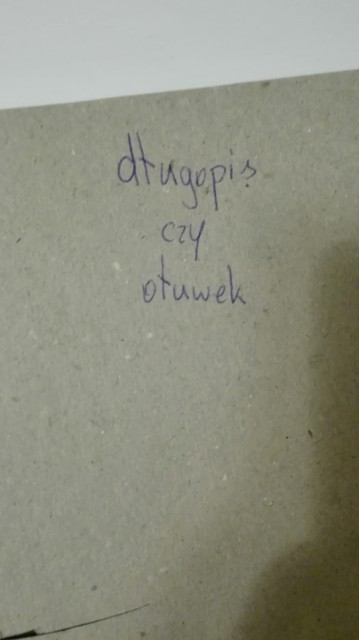 długopis
czy
ołuwek